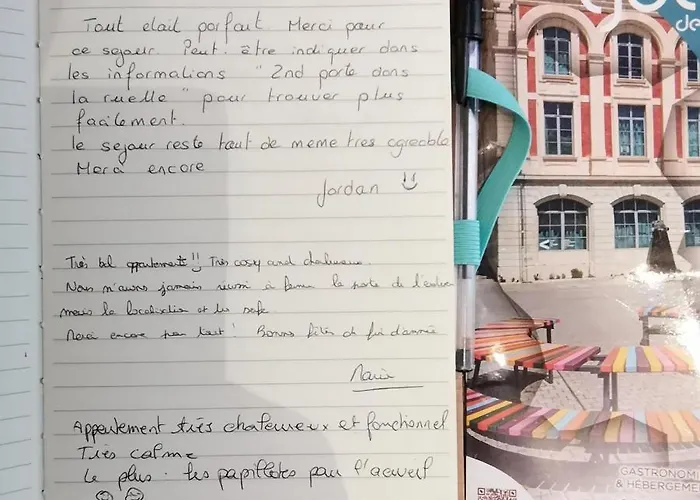 Tout etait parfait. Merci pour
ce sejour. Peut. être indiquer dans
les informations " 2nd porte dans
la ruelle " pour trouver plus
facilement.
le sejour reste tout de meme tres agreable
Merci encore
Jordan
Très bel appartement !! Très cosy and chaleureux.
Nous n'avons jamais réussi à fermer la porte de l'entrée
mais la localisation est très safe
Merci encore pour tout ! Bonnes fêtes de fin d'année
Marie
Appartement très chaleureux et fonctionnel
Très calme
Le plus : les papillotes pour l'accueil
de
GASTRONOMIE
& HÉBERGEME